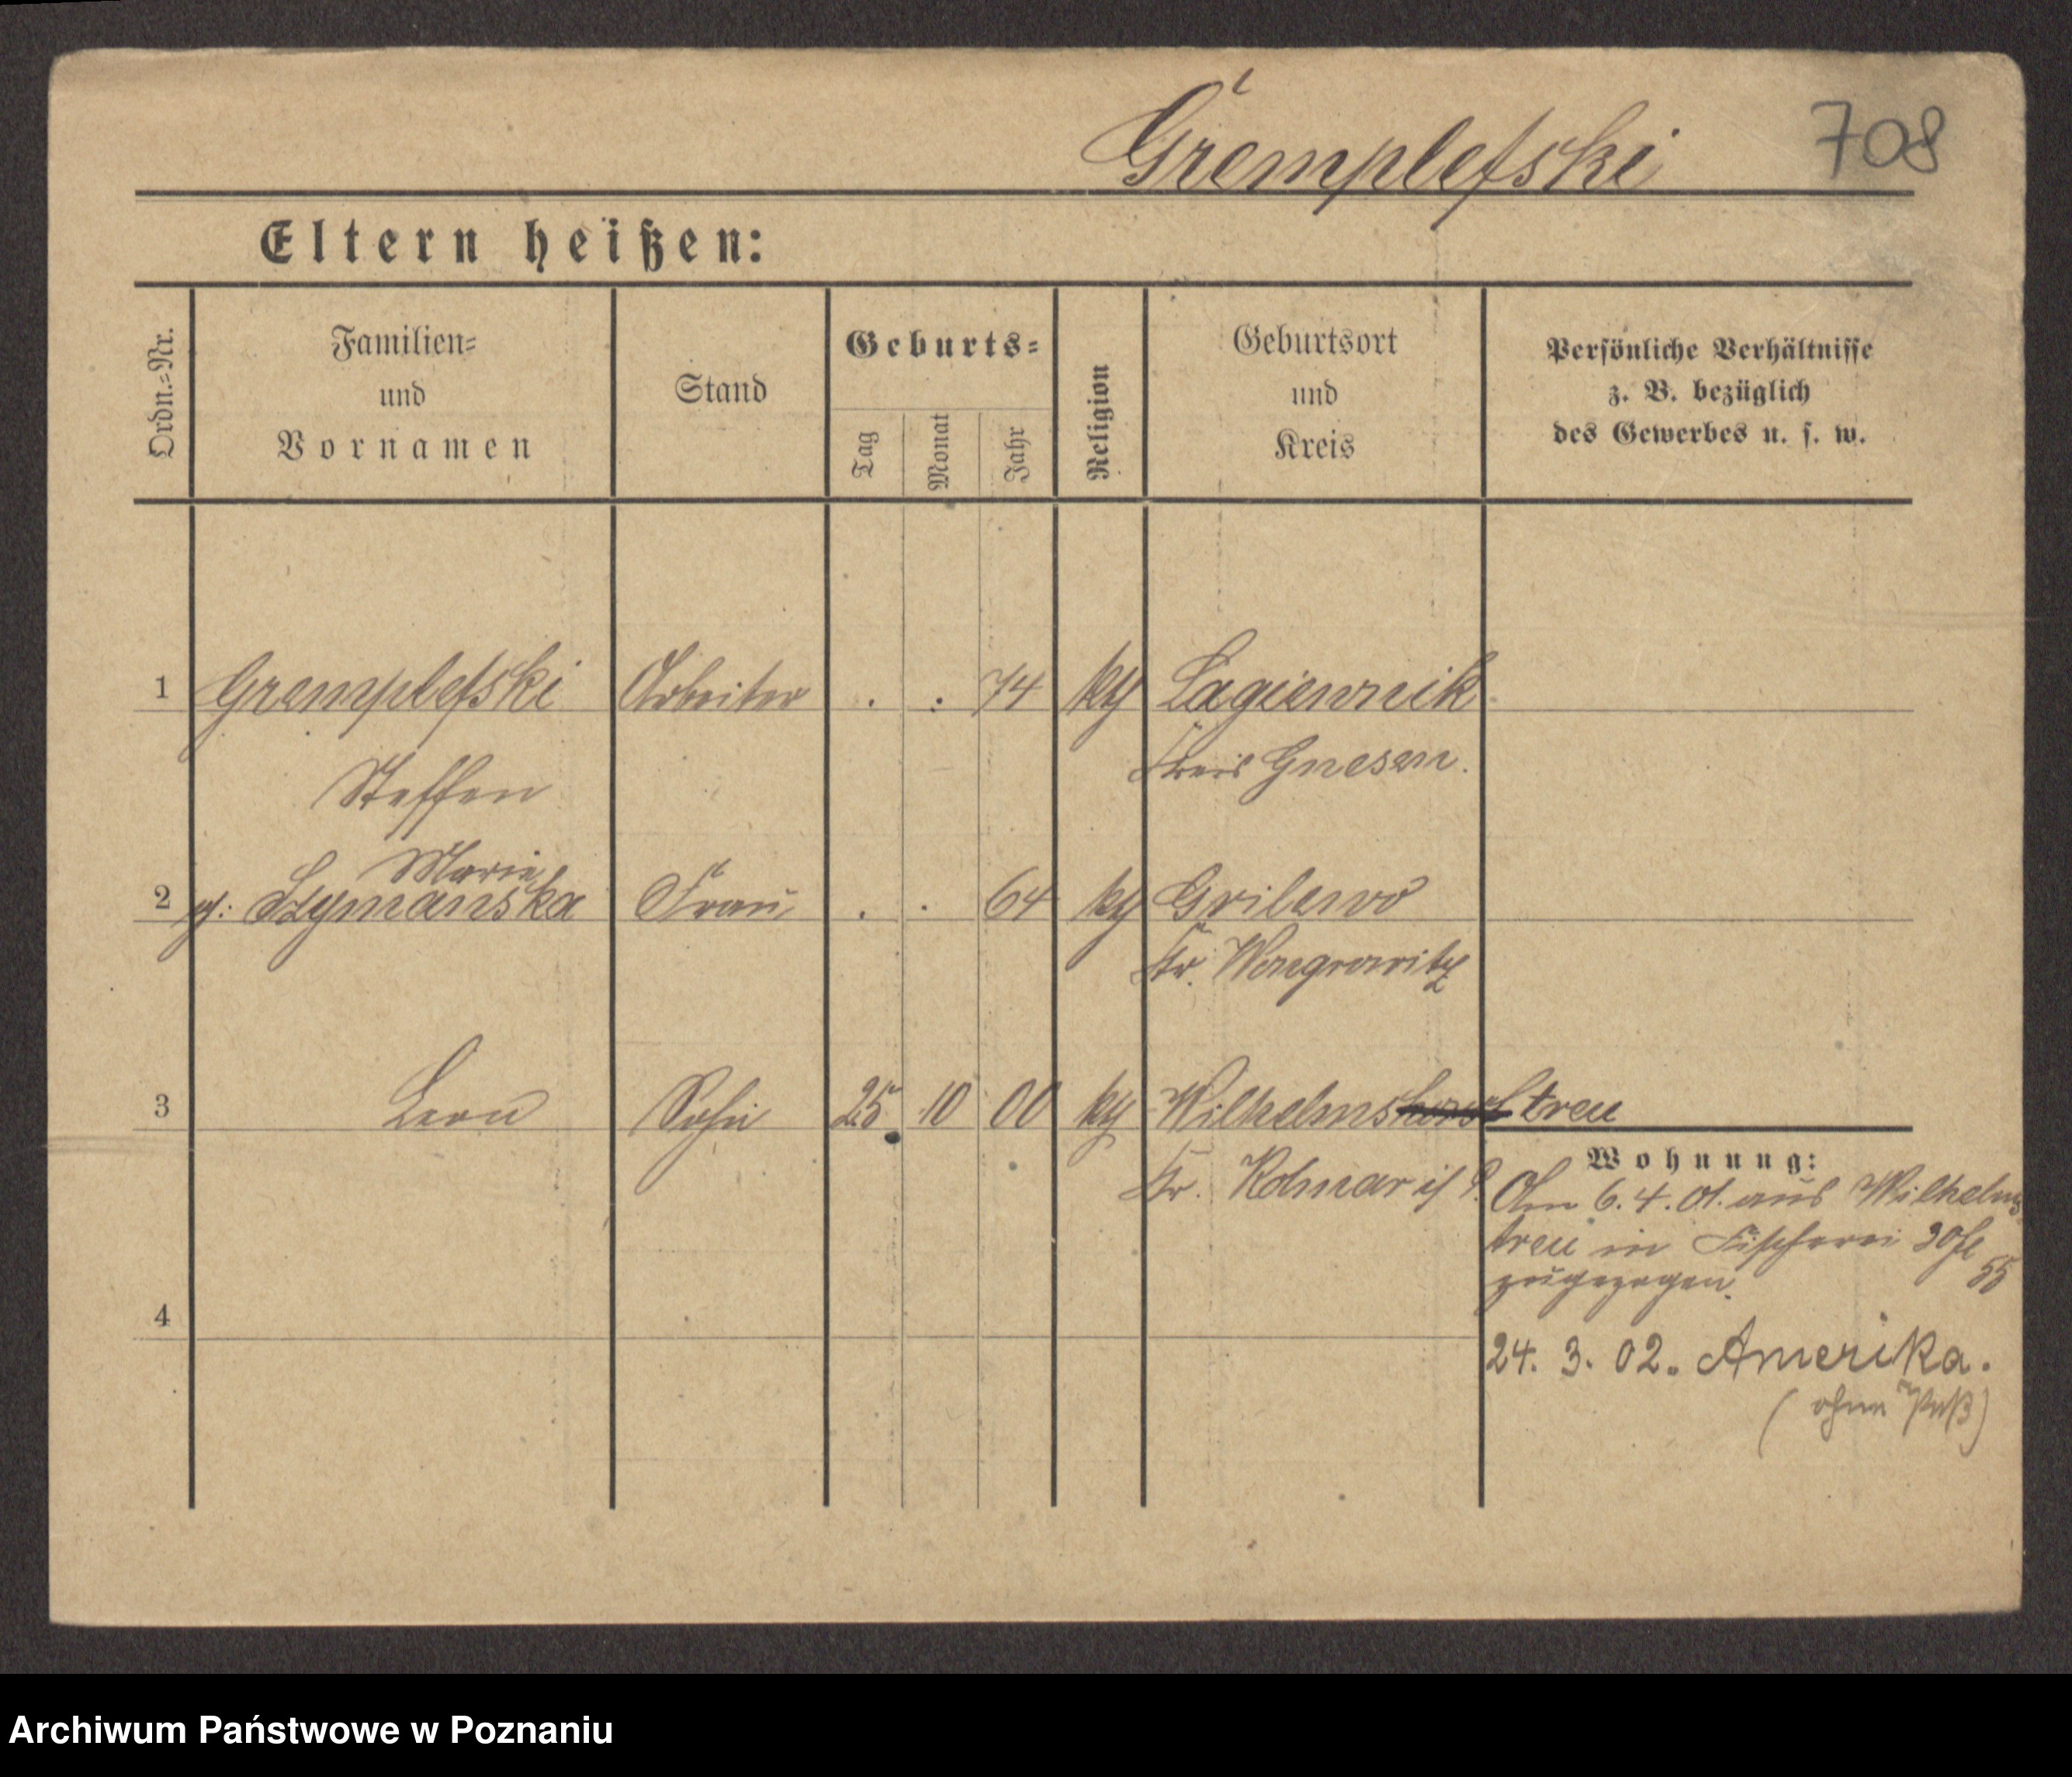 Gremplefski 708
Eltern heißen:
Ordn.-Nr.
Familien-
und
Vornamen
Stand
Geburts-
Tag
Monat
Jahr
Religion
Geburtsort
und
Kreis
Persönliche Verhältnisse
z. B. bezüglich
des Gewerbes u. s. w.
1 Gremplefski Arbeiter . . 74 kg Lagiewnik
Kreis Gnesen.
Steffen
Marie
2 Szymanska Frau . . 64 kg
Kr. Wongrowitz
3 Leon Sohn 25. 10 00 kg Wilhelms treu
Kr. Kolmar i/ P.
Wohnung:
Am 6. 4. 01. aus Wilhelms
treu in Fischerei
zugezogen.
4
24. 3. 02. Amerika.
(ohne Paß)
Archiwum Państwowe w Poznaniu